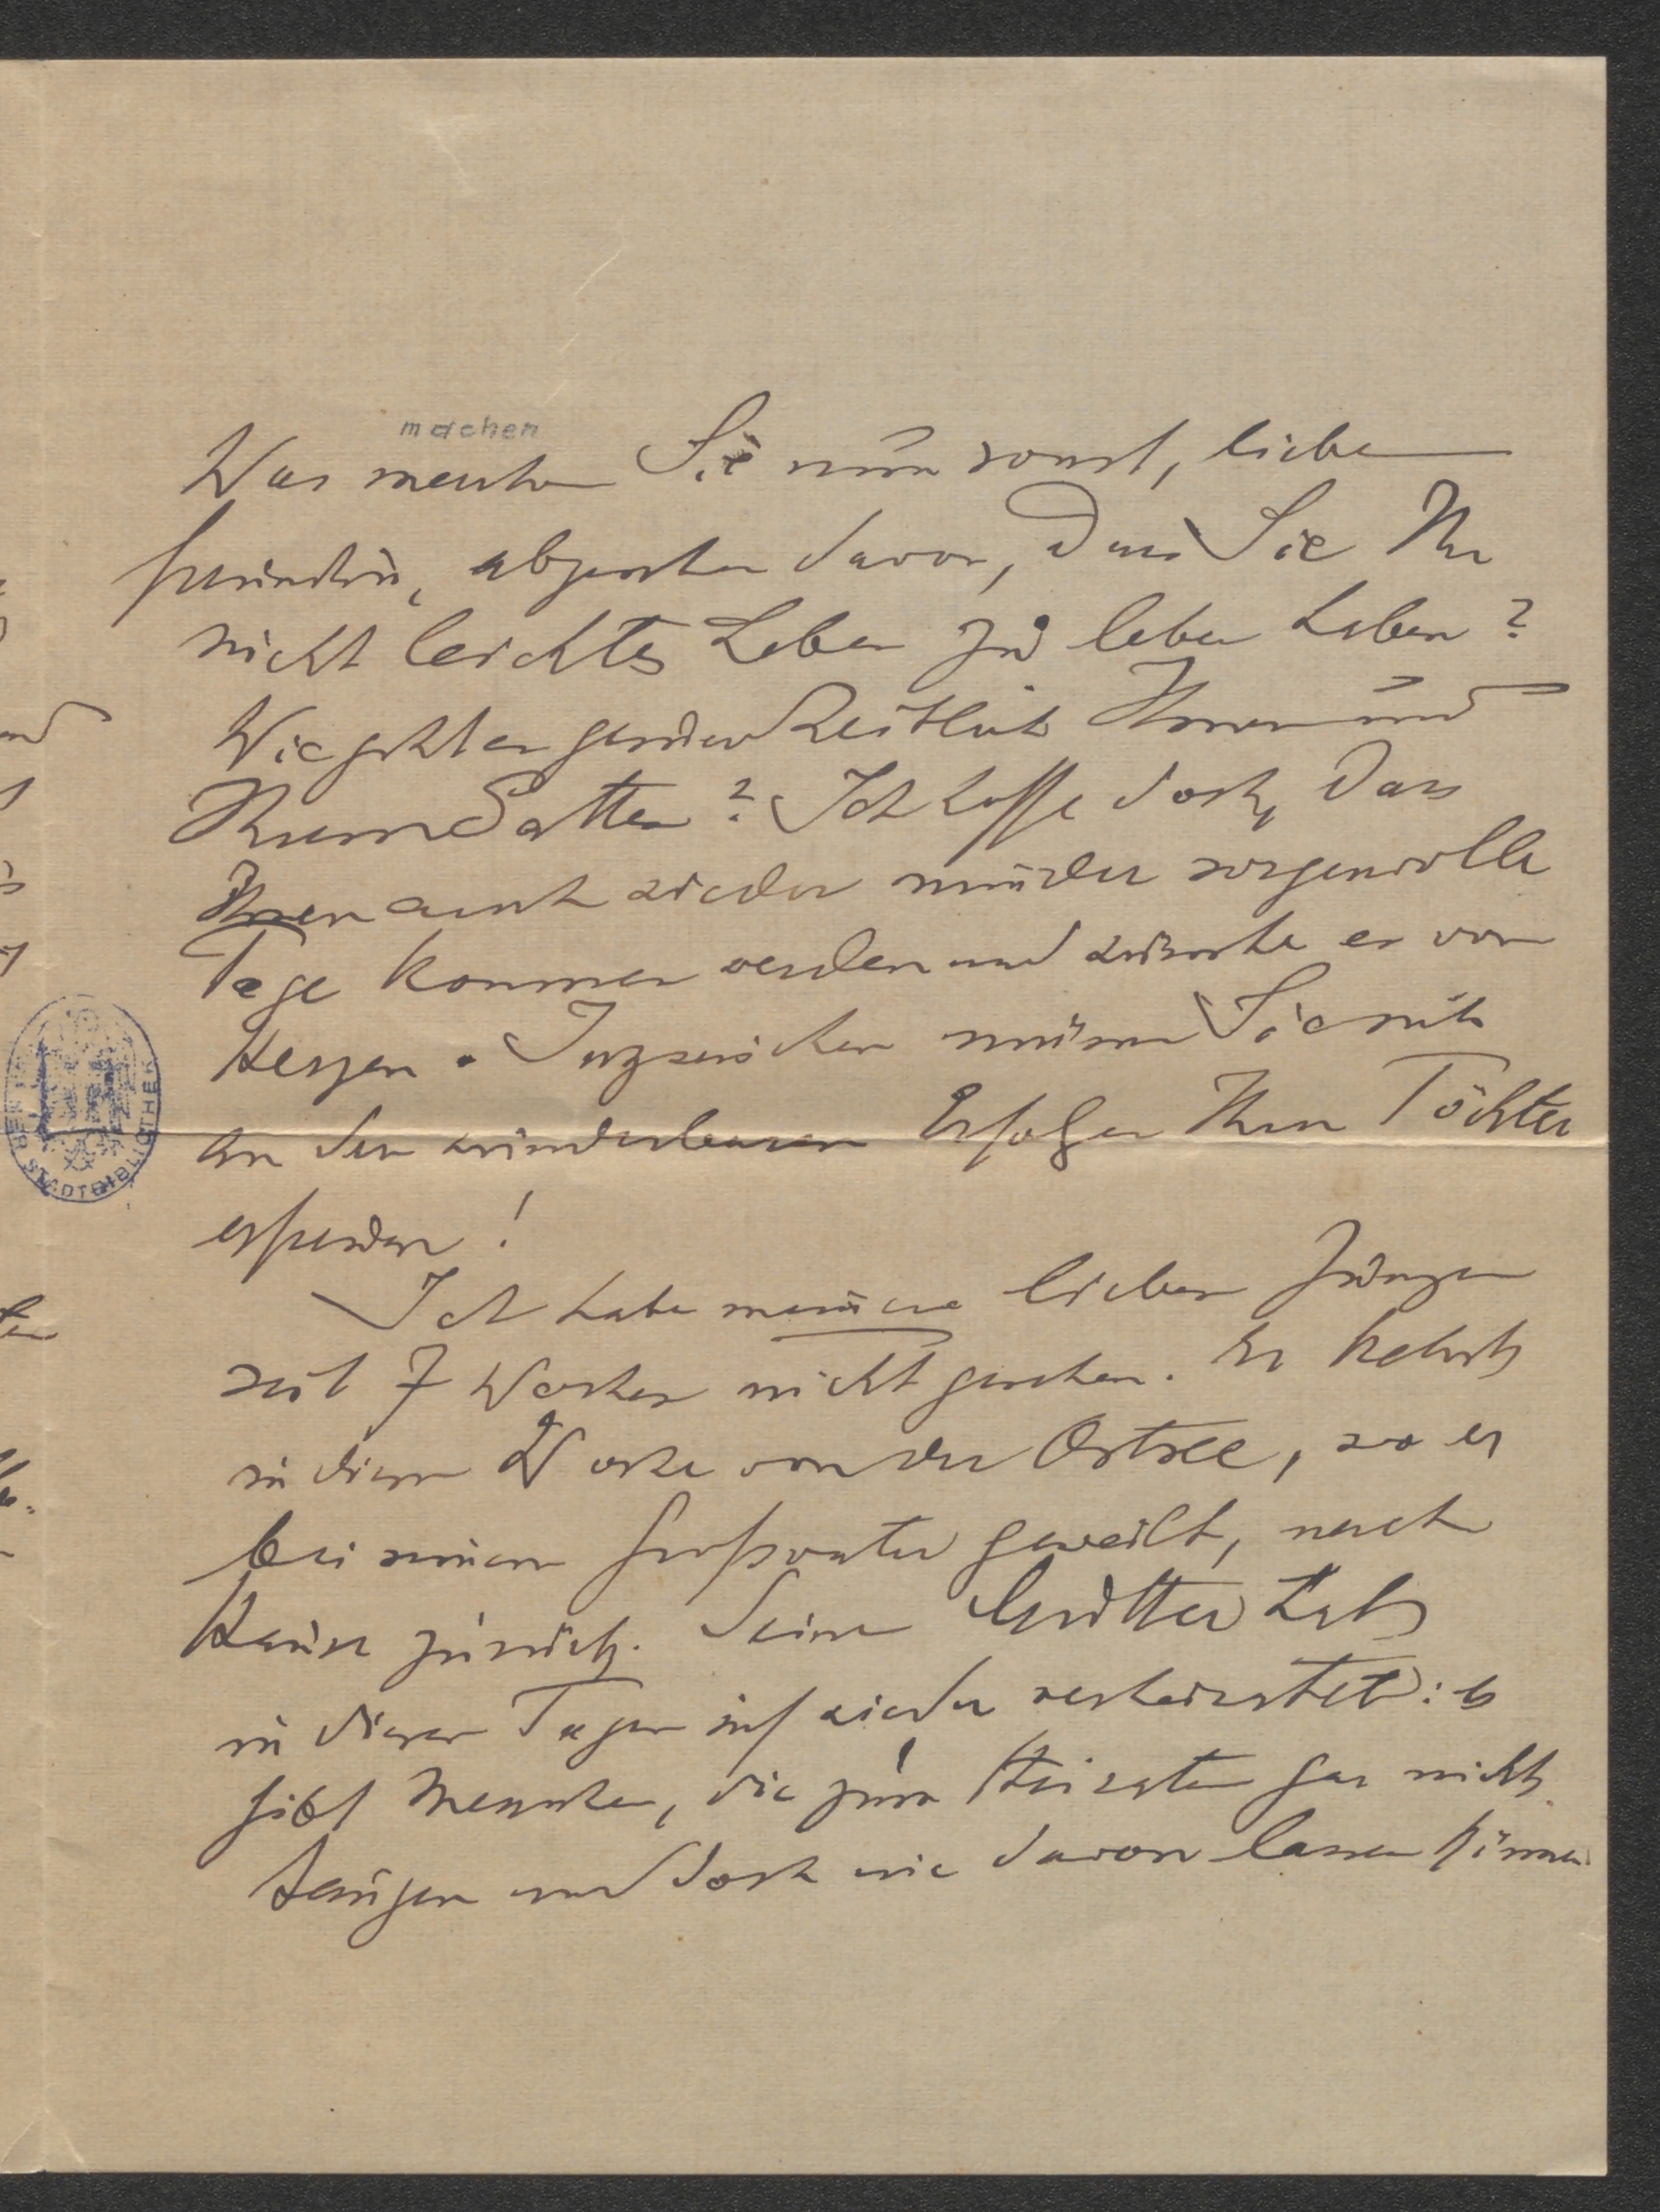 machen
Was machen Sie nun sonst, liebe
Freundin, abgesehen davon, dass Sie Ihr
nicht leichtes Leben zu leben haben?
Wie geht es gesundheitlich Ihnen und
Ihrem Gatten? Ich hoffe doch, dass
Ihnen auch wieder minder sorgenvolle
Tage kommen werden und wünsche es von
Herzen. Inzwischen müssen Sie sich
an den wunderbaren Erfolgen Ihrer Töchter
erfreuen!
Ich habe meinen lieben Jungen
seit 7 Wochen nicht gesehen. Er kehrt
in dieser Woche von der Ostsee, wo er
bei seinem Großvater geweilt, nach
Hause zurück. Seine Mutter hat
in diesen Tagen sich wieder verheiratet: es
gibt Menschen, die zum Heiraten gar nicht
taugen und doch nie davon lassen können.
STADTBIBLIOTHEK